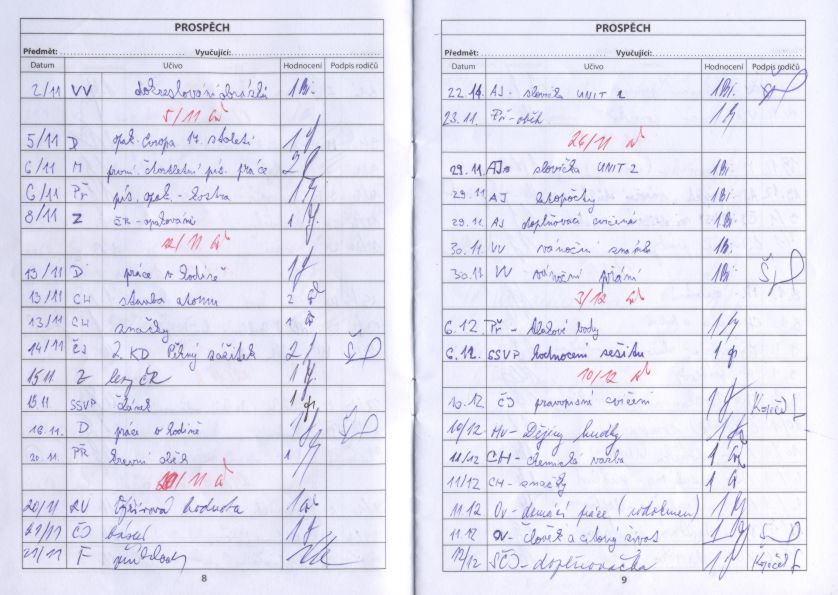 PROSPĚCH
Předmět: Vyučující:
Datum Učivo Hodnocení Podpis rodičů
2/11 VV dokreslování obrázků 1
5/11
5/11 D opak. Evropa 17. století 1
6/11 M první čtvrtletní pís. práce 2
6/11 Př pís. opak. - kostra 1
8/11 Z ČR - opakování 1
12/11
13/11 D práce v hodině 1
13/11 CH stavba atomu 2
13/11 CH značky 1
14/11 ČJ 2. KD Pěkný zážitek 2
15.11. Z lesy ČR 1
15.11. SSVP článek 1
16.11. D práce v hodině 1
20.11. PŘ krevní oběh 1
20/11
20/11 RV Výživová hodnota 1
21/11 ČJ báseň 1
21/11 F příklady
8
PROSPĚCH
Předmět: Vyučující:
Datum Učivo Hodnocení Podpis rodičů
22.11. AJ slovíčka UNIT 2 1
23.11. Př - oběh 1
26/11
29.11. AJ slovíčka UNIT 2 1
29.11. AJ 1
29.11. AJ doplňovací cvičení 1
30.11. VV vánoční 1
30.11. VV vánoční přání 1
3/12
6.12. Př - tělové 1
6.12. SSVP hodnocení sešitu 1
10/12
10.12 ČJ pravopisné cvičení 1
10/12 HV - Dějiny hudby 1
11/12 CH - chemická vazba 1
11/12 CH - značky 1
11 12 OV - domácí práce (rodokmen) 1
11.12 OV - Člověk a citový život 1
12/12 SČJ - doplňovačka 1
9